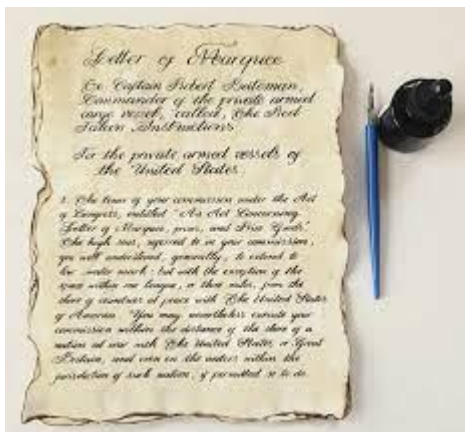 Letter of Marquee
To Captain Robert
Commander of the private armed
cargo vessel, called, The Red
Falcon Instructions
To the private armed vessels of
the United States.
1. The tenor of your commission under the Act
of Congress, entitled "An Act Concerning
Letter of Marquee, prizes, and Prize Goods"
The high seas, referred to in your commission,
you will understand, generally, to extend to
low water mark; but with the exception of the
space within one league, or three miles, from the
shore of countries at peace with The United States
of America. You may nevertheless execute your
commission within the distance of the shore of a
nation at war with The United States or Great
Britain, and even on the waters within the
jurisdiction of such nation, if permitted so to do.